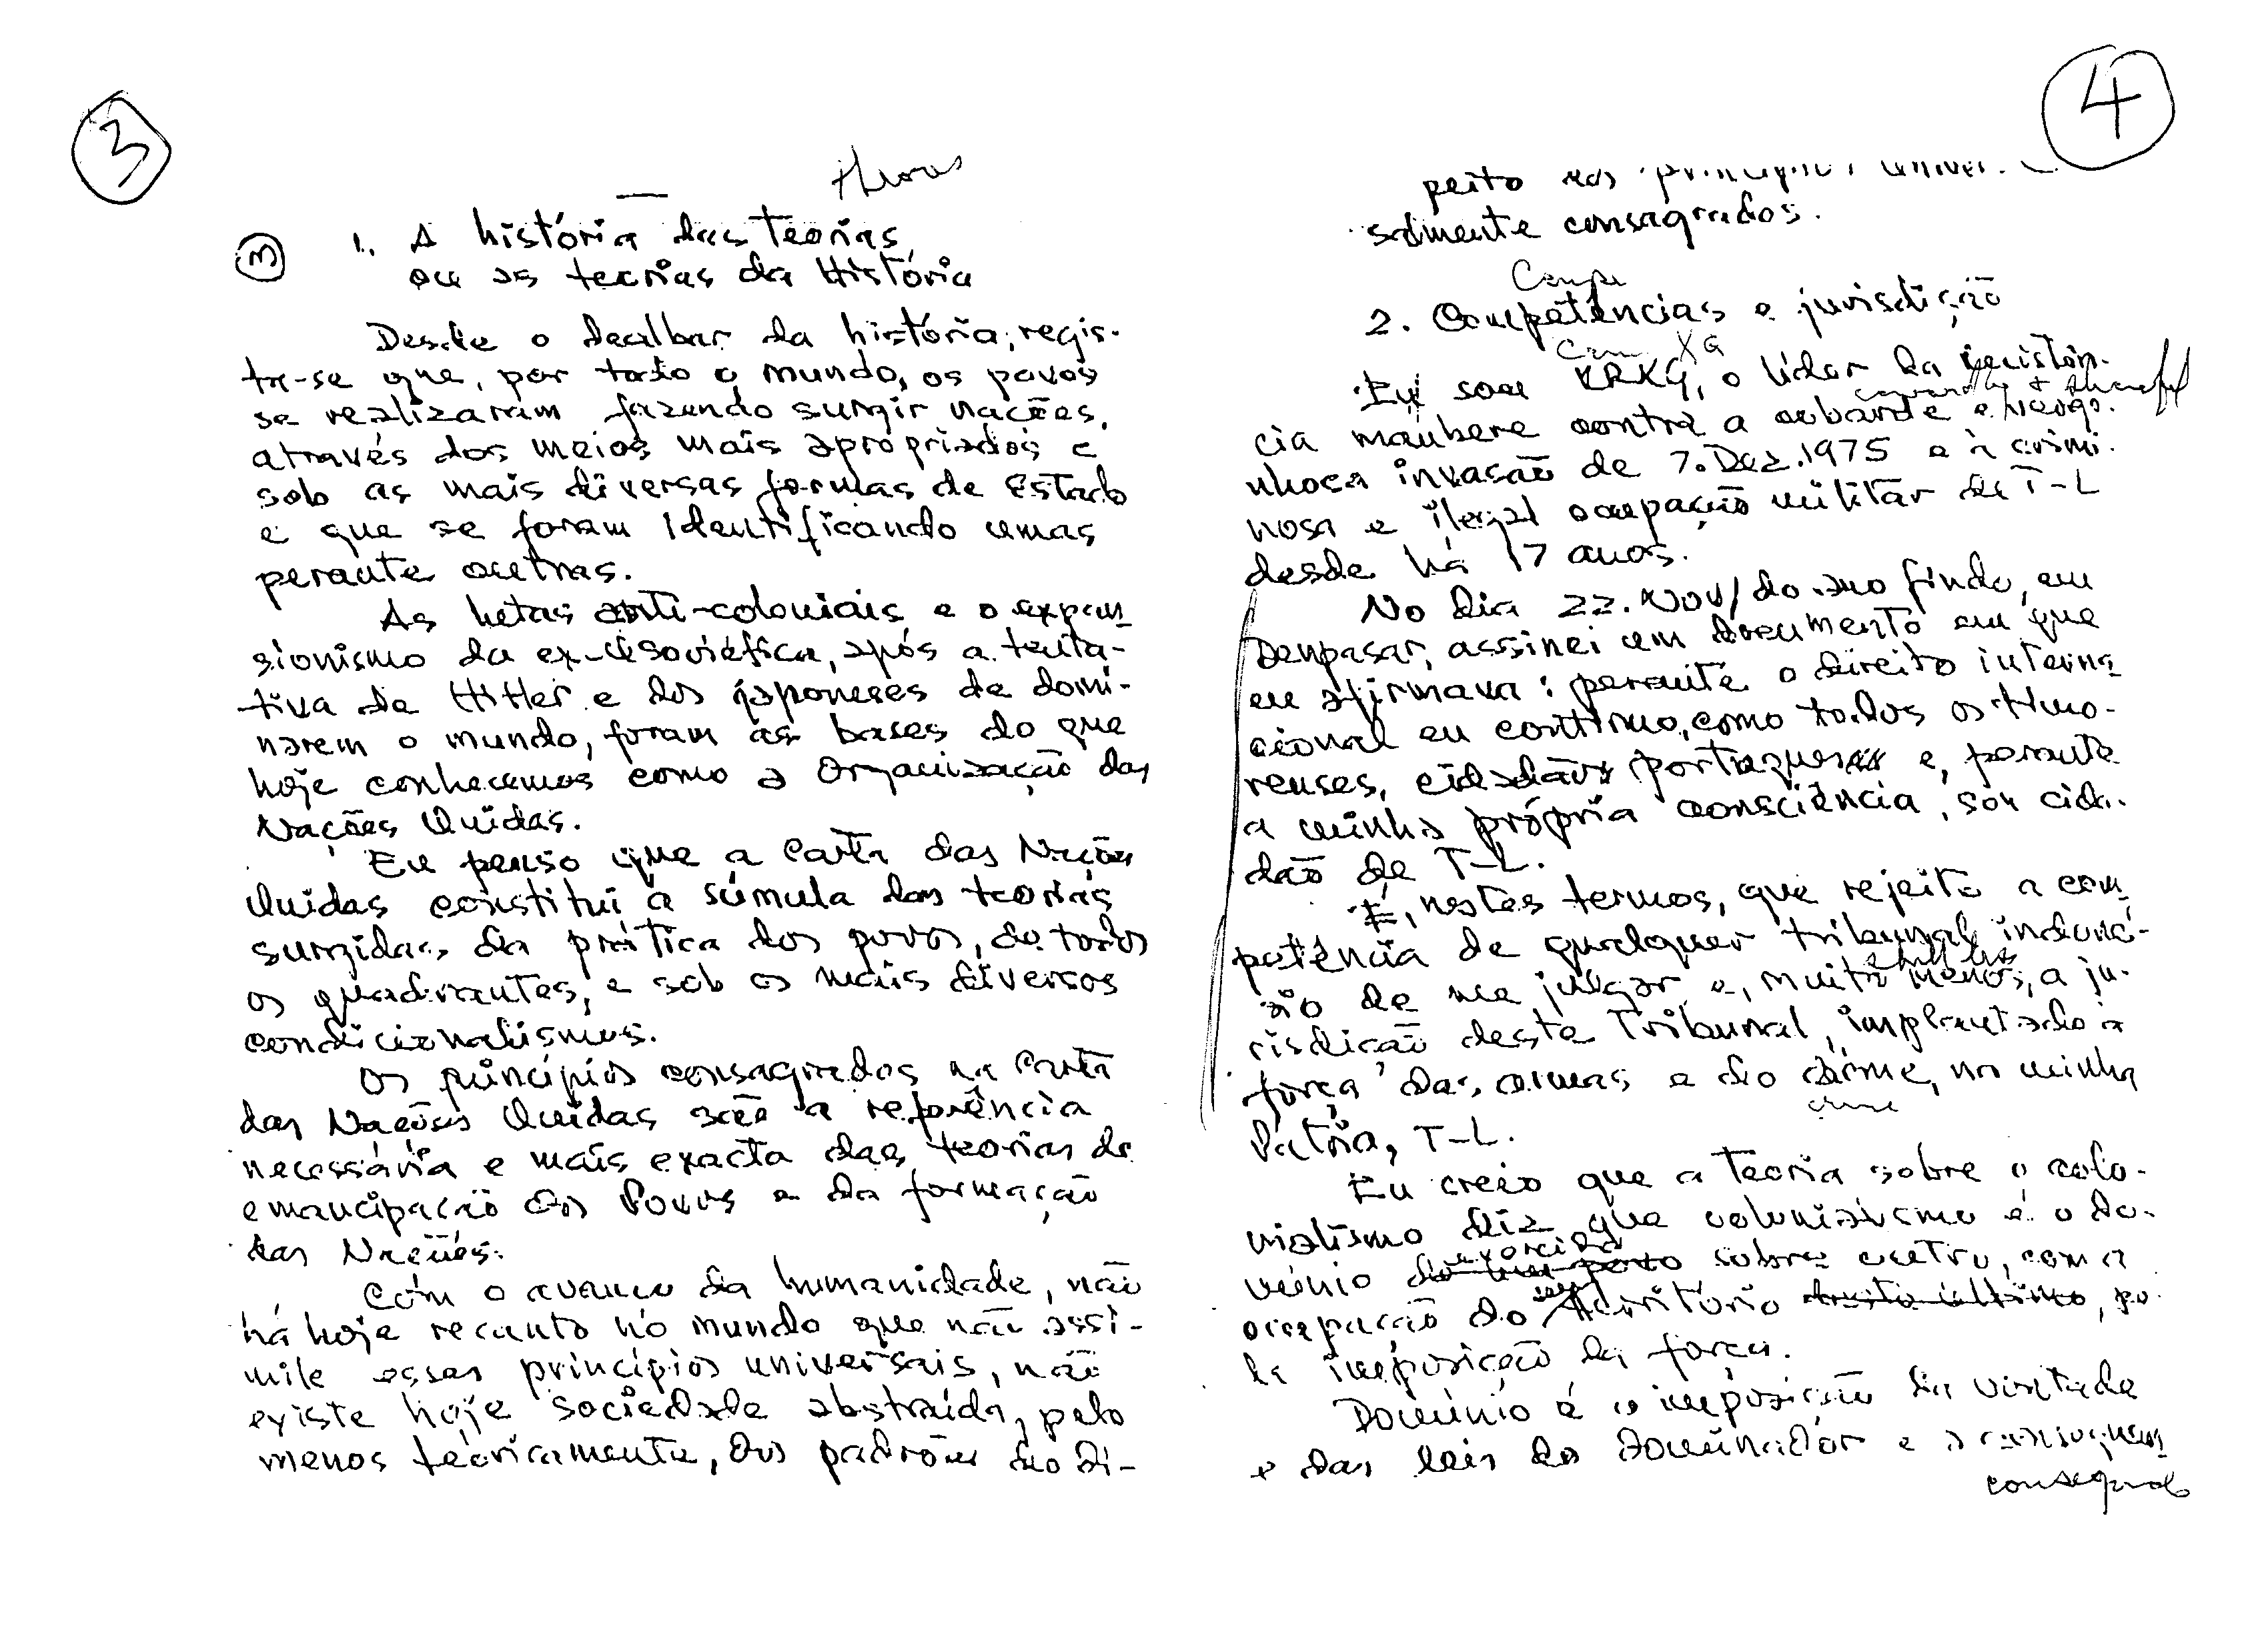 3
theories
m
1. A história das Teorias
ou as teorias da História
Desde o dealbar da história, regis-
tra-se que, por todo o mundo, os povos
se realizaram fazendo surgir nações,
através dos meios mais apropriados e
sob as mais diversas formas de Estado
e que se foram identificando umas
perante outras.
As lutas anti-coloniais e o expan-
sionismo da ex-U. soviética, após a tenta-
tiva de Hitler e dos japoneses de domi-
narem o mundo, foram as bases do que
hoje conhecemos como a Organização das
Nações Unidas.
Eu penso que a Carta das Nações
Unidas constitui a súmula das teorias
surgidas da prática dos povos, de todos
os quadrantes, e sob os mais diversos
condicionalismos.
Os princípios consagrados na Carta
das Nações Unidas são a referência
necessária e mais exacta das teorias da
emancipação dos Povos e da formação
das Nações.
Com o avanço da humanidade, não
há hoje recanto no mundo que não assi-
mile esses princípios universais, não
existe hoje sociedade abstraída, pelo
menos teoricamente, dos padrões do di-
4
peito aos princípios univer-
salmente consagrados.
Comp
2. Competências e jurisdição
XG
Eu sou KRXG, o líder da resistên-
cia maubere contra a cobarde e vergo-
nhosa invasão de 7.Dez.1975 e à crimi-
nosa e ilegal ocupação militar de T-L
desde há 17 anos.
No dia 22.Nov/ do ano findo, em
Denpasar, assinei um documento em que
eu afirmava: perante o direito interna-
cional eu continuo, como todos os timo-
renses, cidadão português e, perante
a minha própria consciência, sou cida-
dão de T-L.
É, nestes termos, que rejeito a com-
petência de qualquer tribunal indoné-
sio de me julgar e, muito menos, a ju-
risdição deste Tribunal, implantado à
força das armas e do crime, na minha
crime
Pátria, T-L.
Eu creio que a Teoria sobre o colo-
nialismo diz que colonialismo é o do-
exercido
mínio do um povo sobre outro, com a
seu
ocupação do território deste último, pe-
la imposição da força.
Domínio é a imposição da vontade
e das leis do dominador e a consequen-